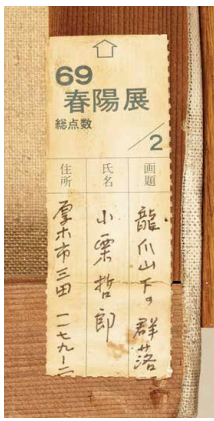 69
春陽展
総点数
/2
画題
龍爪山下の群落
氏名
小栗哲郎
住所
厚木市三田一二七九ー二